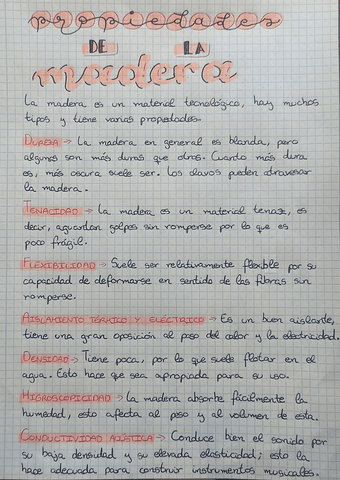 propiedades
DE LA
madera
La madera es un material tecnológico, hay muchos
tipos y tiene varias propiedades.
DUREZA → La madera en general es blanda, pero
algunas son más duras que otras. Cuando más dura
es, más oscura suele ser. Los clavos pueden atravesar
la madera.
TENACIDAD → La madera es un material tenaz, es
decir, aguantan golpes sin romperse por lo que es
poco frágil.
FLEXIBILIDAD → Suele ser relativamente flexible por su
capacidad de deformarse en sentido de las fibras sin
romperse.
AISLAMIENTO TÉRMICO Y ELÉCTRICO → Es un buen aislante,
tiene una gran oposición al paso del calor y la electricidad.
DENSIDAD → Tiene poca, por lo que suele flotar en el
agua. Esto hace que sea apropiada para su uso.
HIGROSCOPICIDAD → La madera absorbe fácilmente la
humedad, esto afecta al peso y al volumen de esta.
CONDUCTIVIDAD ACÚSTICA → Conduce bien el sonido por
su baja densidad y su elevada elasticidad; esto la
hace adecuada para construir instrumentos musicales.